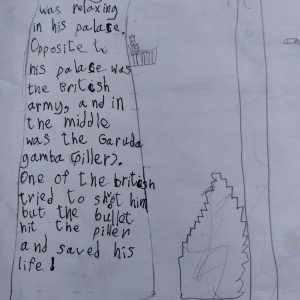 was relaxing
in his palace.
Opposite to
his palace was
the British
army, and in
the middle
was the Garuda
gamba (piller).
One of the british
tried to shot him
but the bullet
hit the piller
and saved his
life!